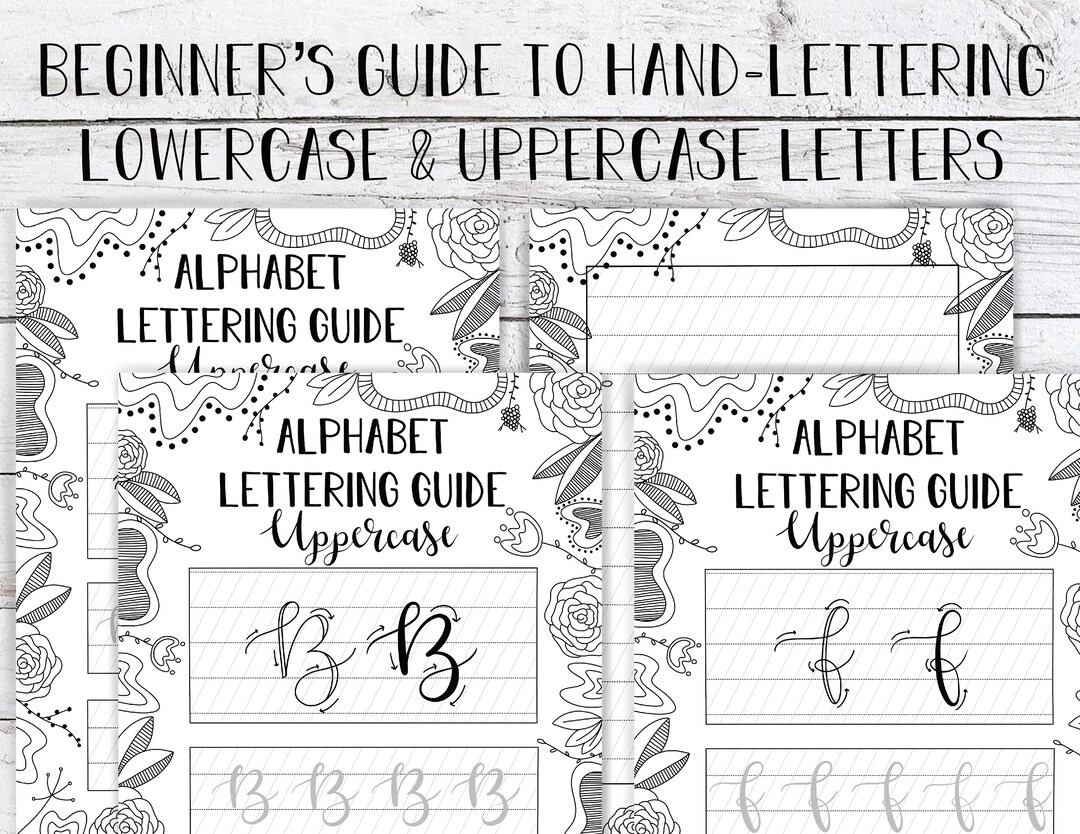 BEGINNER'S GUIDE TO HAND-LETTERING
LOWERCASE & UPPERCASE LETTERS
ALPHABET
LETTERING GUIDE
Uppercase
ALPHABET
LETTERING GUIDE
Uppercase
B B
B B B B
ALPHABET
LETTERING GUIDE
Uppercase
f f
f f f f f